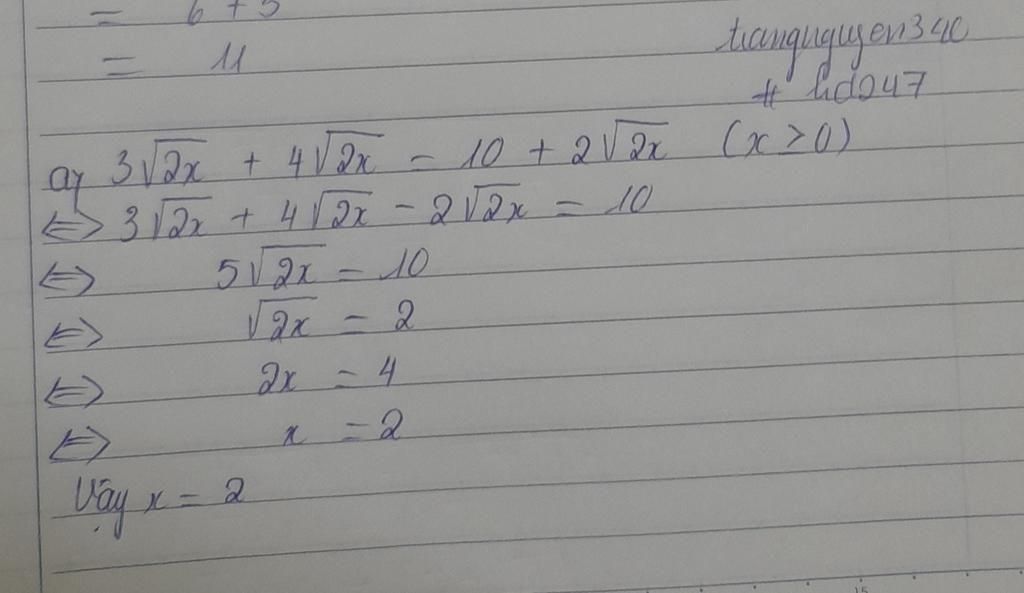 = 6 + 5
= 11
trangnguyen34c
# hd247
a, 3√2x + 4√2x = 10 + 2√2x (x ≥ 0)
⇔ 3√2x + 4√2x - 2√2x = 10
⇔ 5√2x = 10
⇔ √2x = 2
⇔ 2x = 4
⇔ x = 2
Vậy x = 2
15